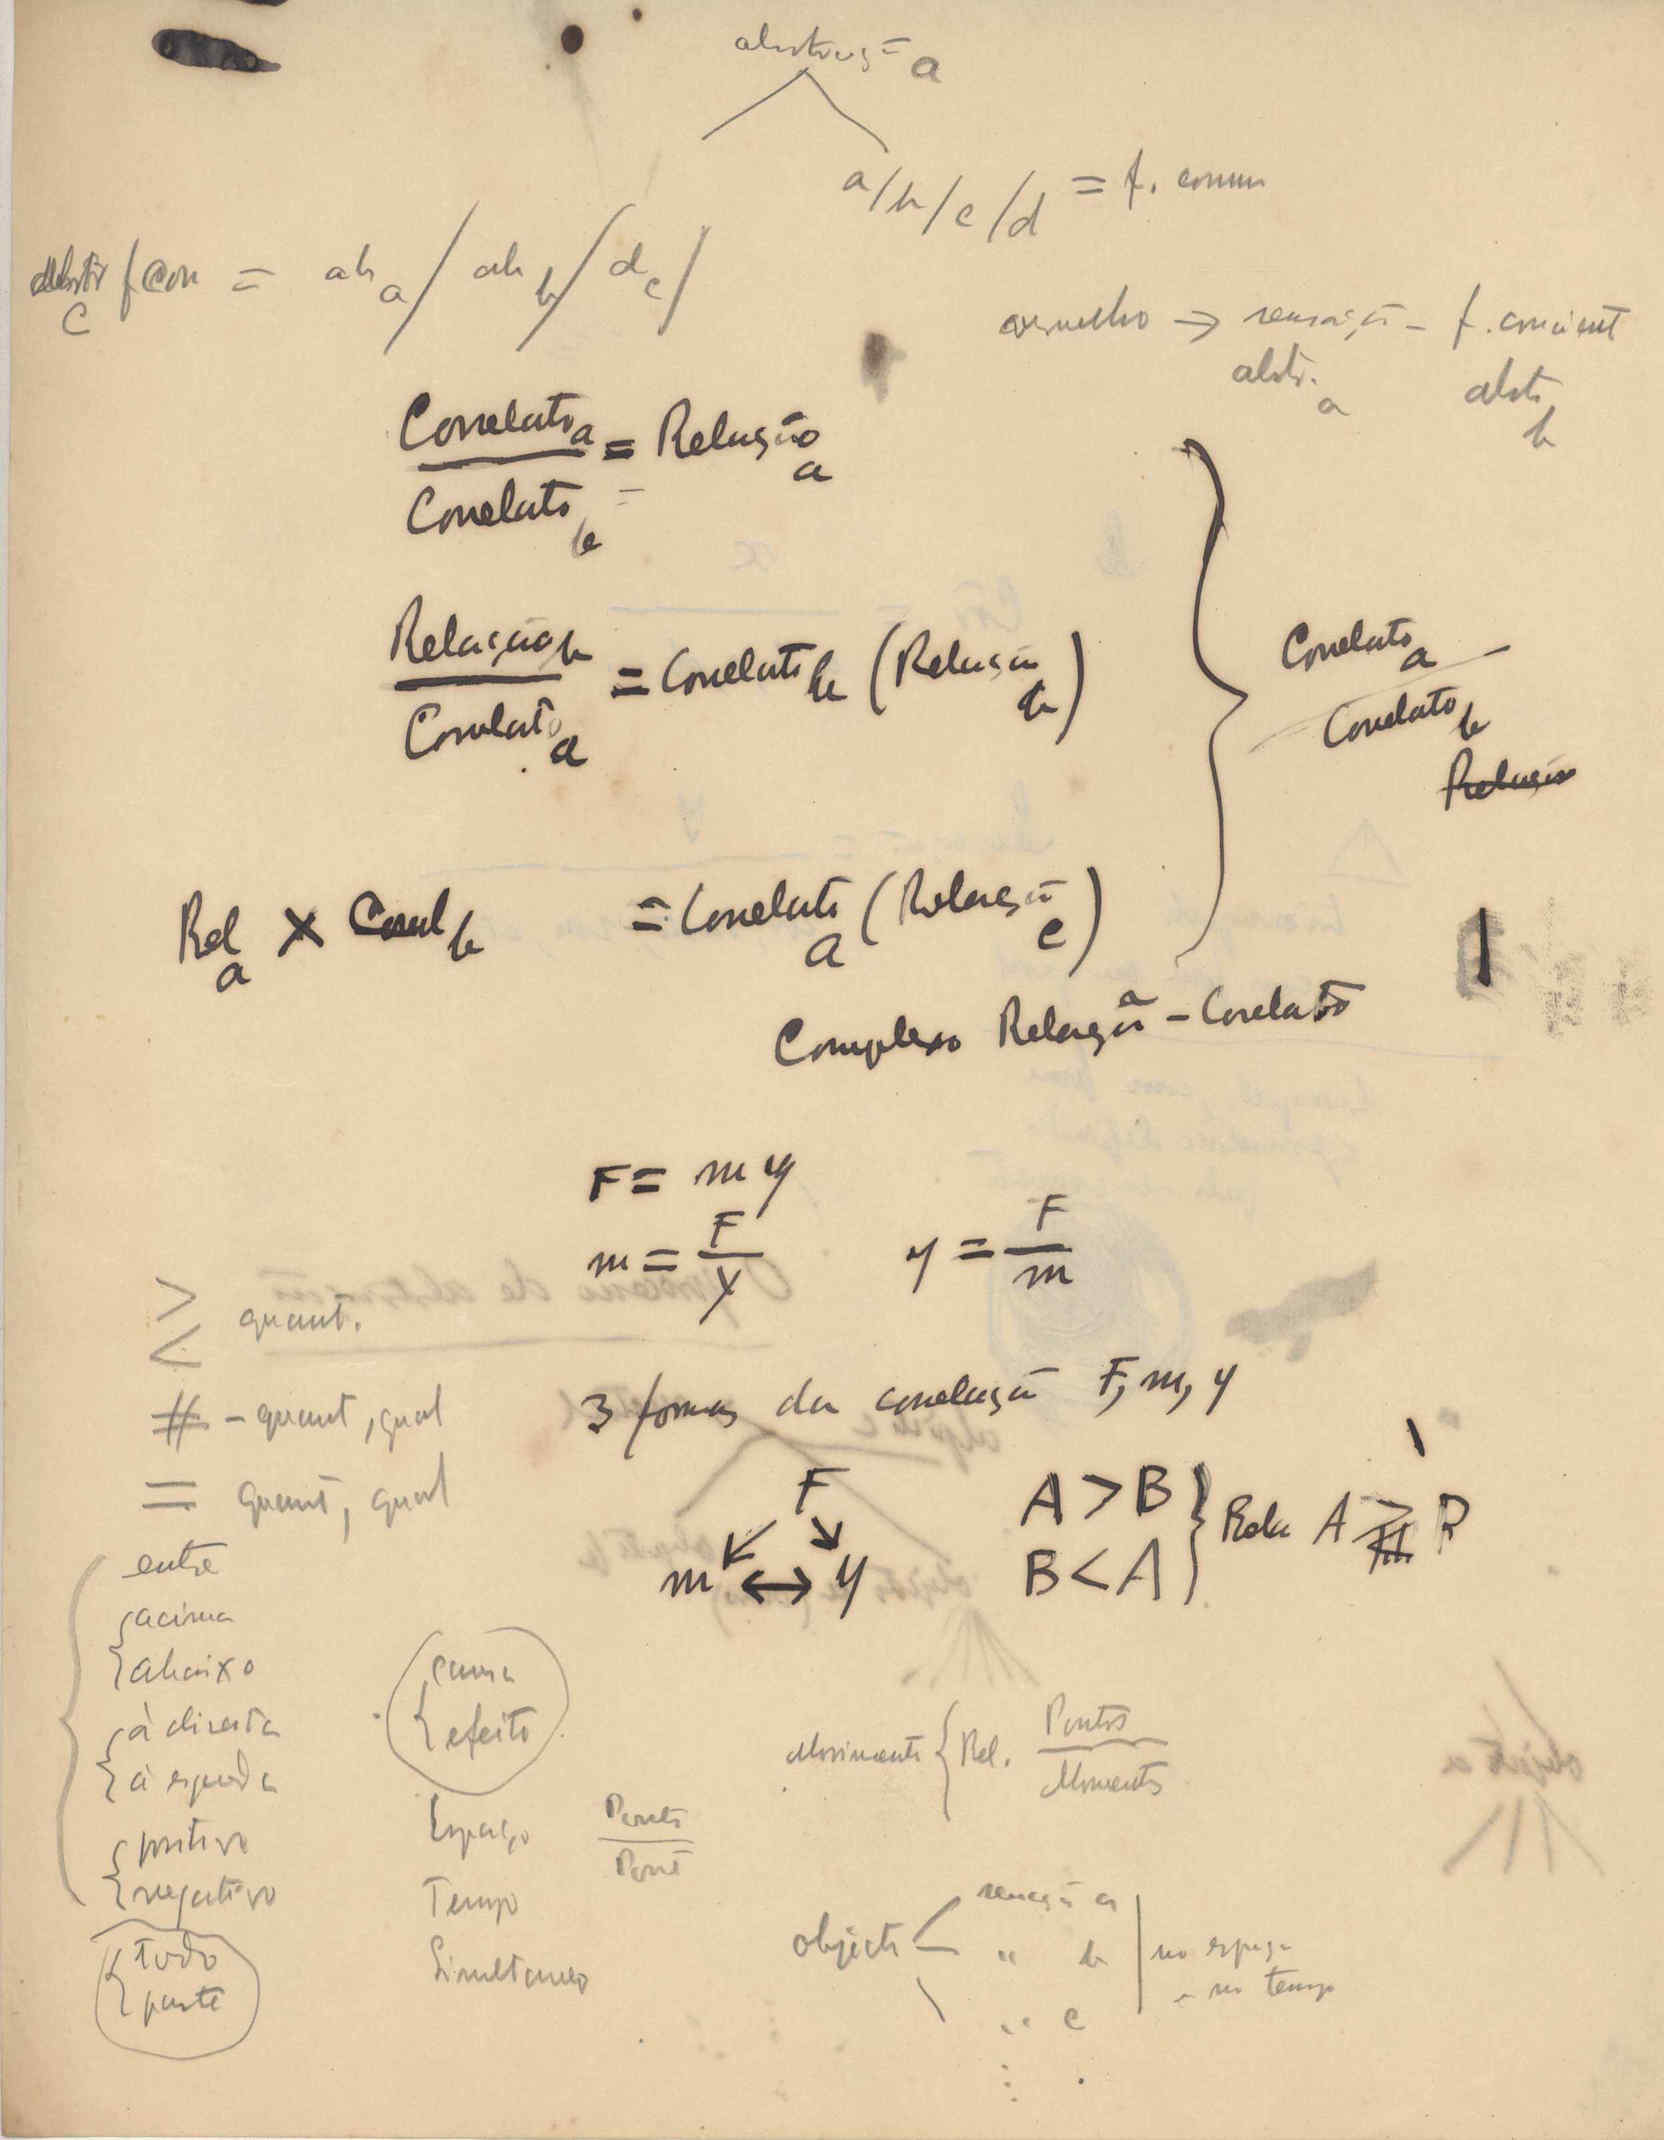 abstração a
a/b/c/d = f. comum
abstr c f con = ab a / ab b / d c /
vermelho → sensação – f. concient
abstr. a abst b
Correlato a / Correlato b = Relação a
Relação b / Correlato a = Correlato b (Relação b)
Correlato a / Correlato b
Relação
Rel a × Correl b = Correlato a (Relação c)
Complexo Relação – Correlato
F = m y
m = F / y y = F / m
>
< quant.
# – quant, qual
= quant, qual
3 formas da correlação F, m, y
F
m ↔ y
A > B
B < A
Rela A B
entre
acima
abaixo
à direita
à esquerda
positivo
negativo
todo
parte
causa
efeito
Espaço Ponto / Ponto
Tempo
Simultaneo
Movimento { Rel. Pontos / Momentos
objecto sensação a
" b no espaço
" c no tempo